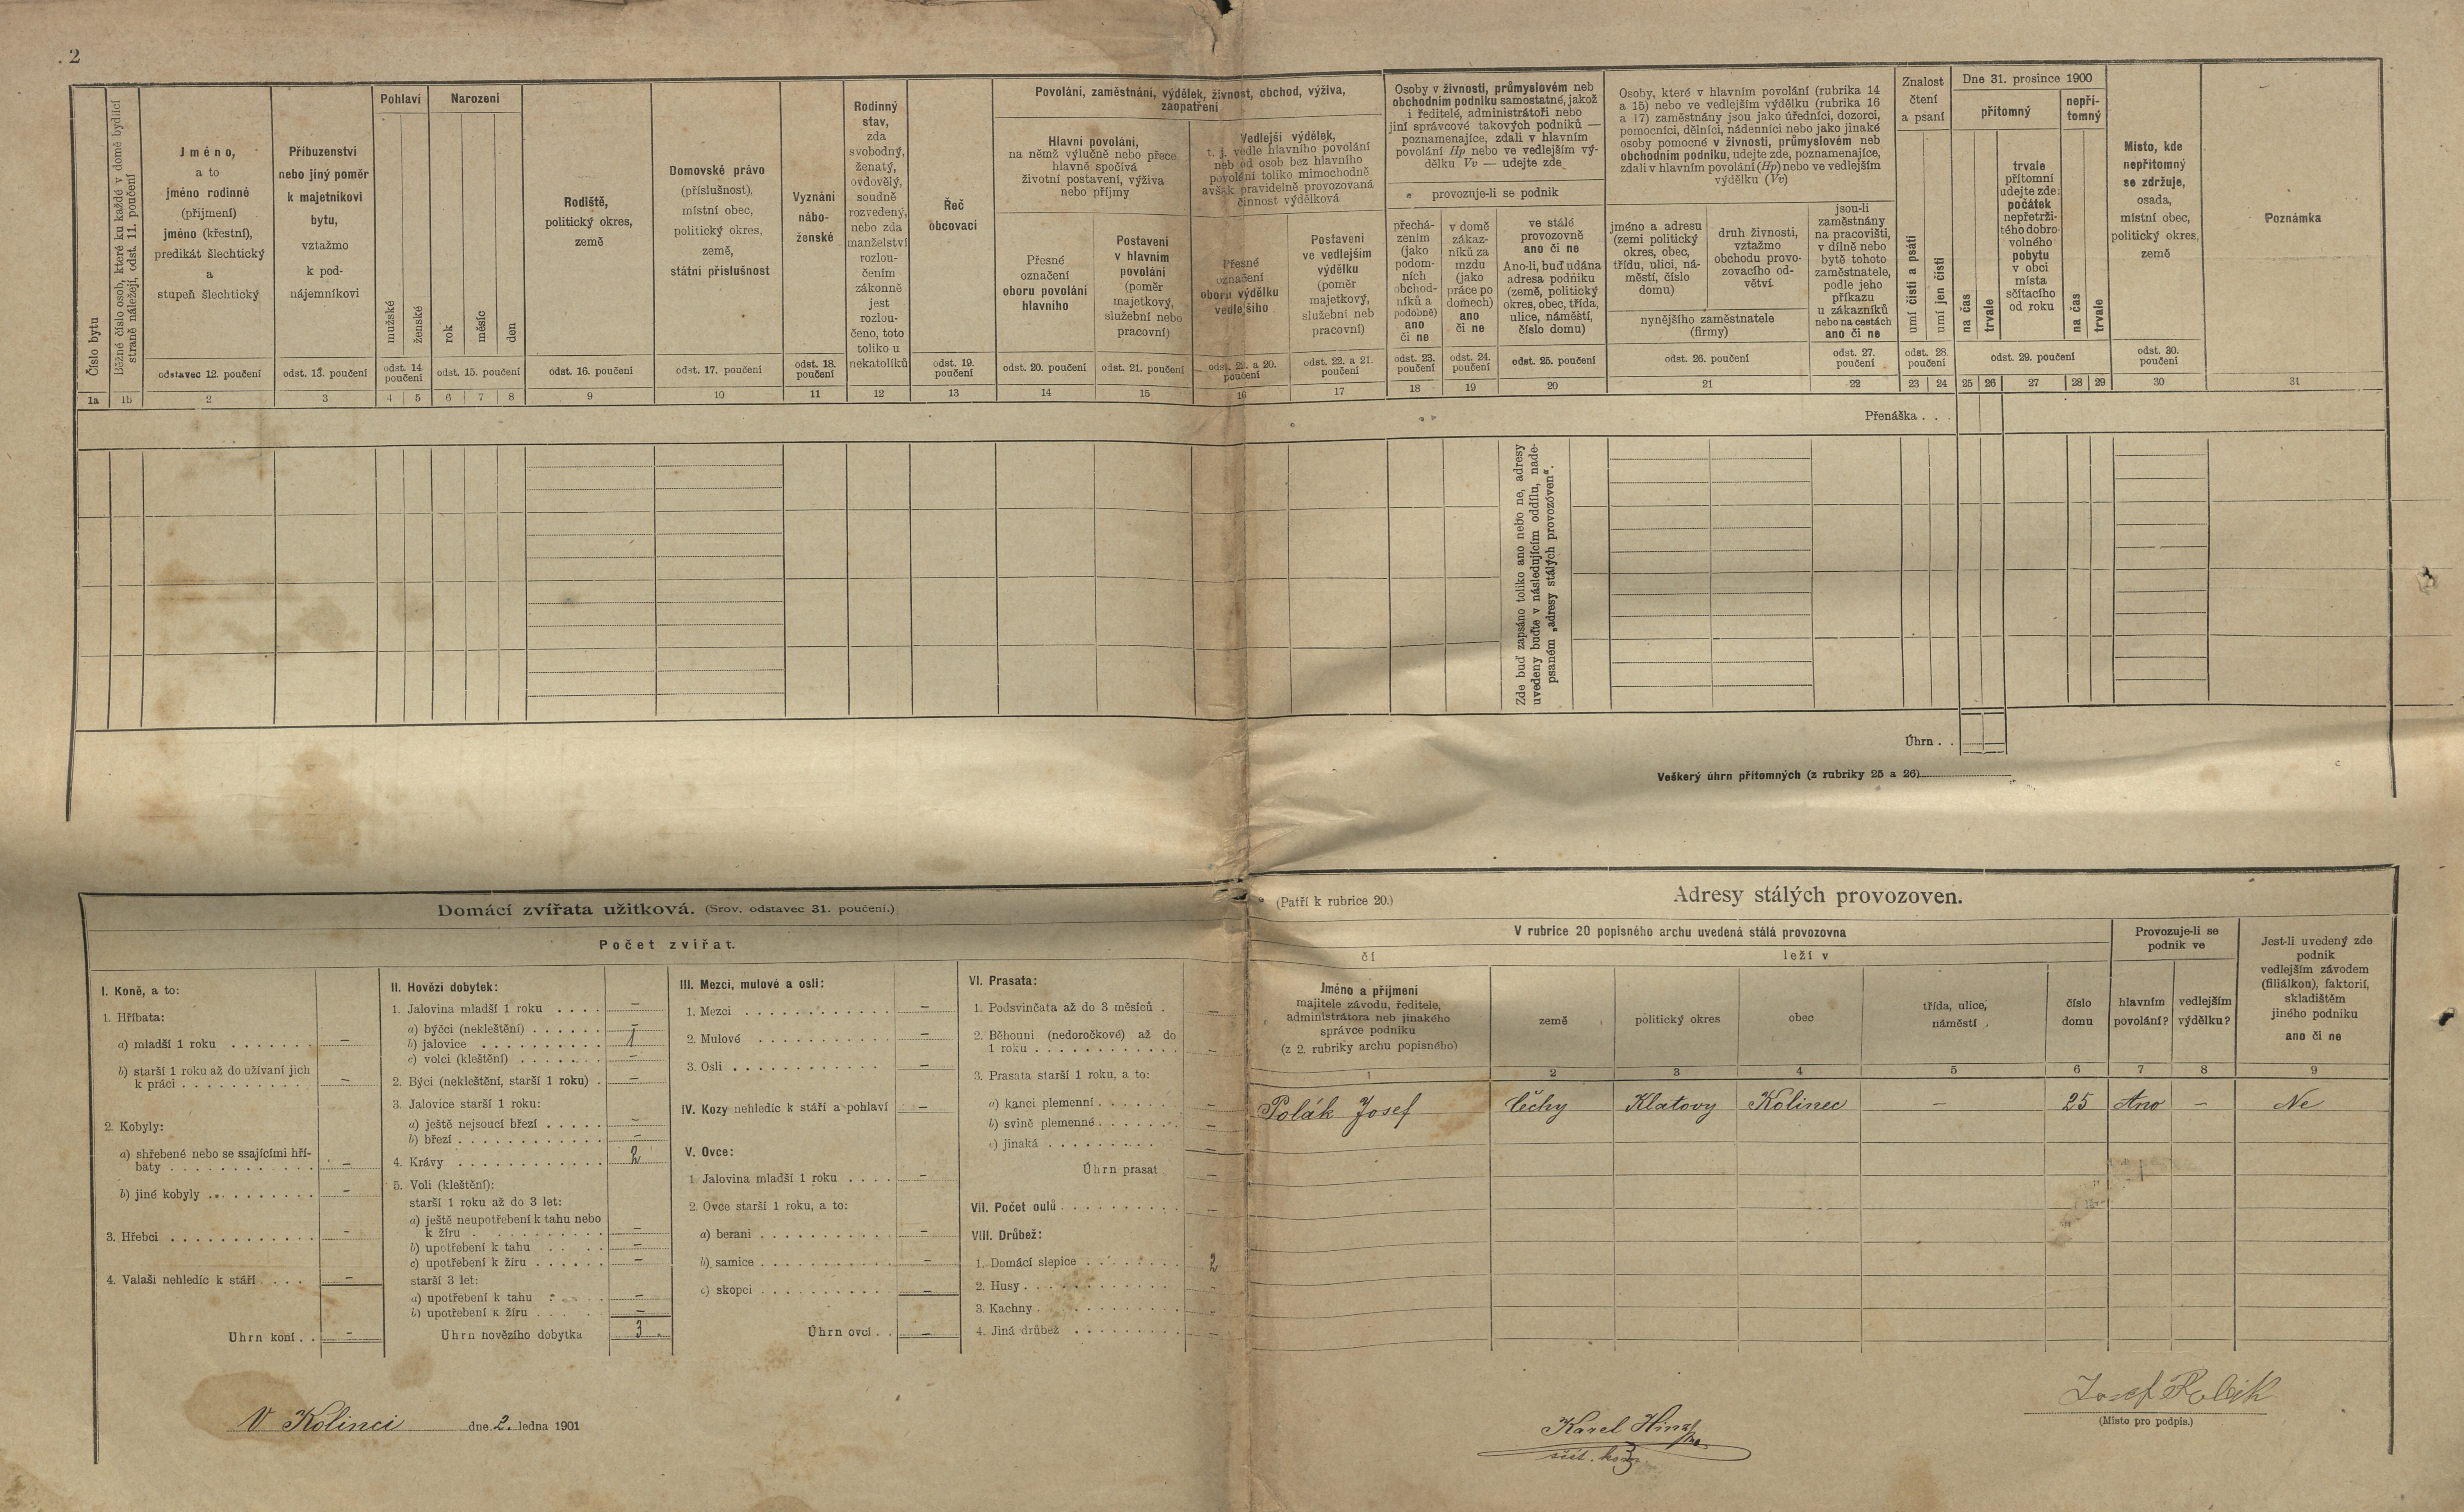 2
Číslo bytu
Běžné číslo osob, které ku každé v domě bydlící
straně náležejí, odst. 11. poučení
Jméno,
a to
jméno rodinné
(příjmení)
jméno (křestní),
predikát šlechtický
a
stupeň šlechtický
odstavec 12. poučení
Příbuzenství
nebo jiný poměr
k majetníkovi
bytu,
vztažmo
k pod-
nájemníkovi
odst. 13. poučení
Pohlaví
mužské
ženské
odst. 14.
poučení
Narozeni
rok
měsíc
den
odst. 15. poučení
Rodiště,
politický okres,
země
odst. 16. poučení
Domovské právo
(příslušnost),
místní obec,
politický okres,
země,
státní příslušnost
odst. 17. poučení
Vyznání
nábo-
ženské
odst. 18.
poučení
Rodinný
stav,
zda
svobodný,
ženatý,
ovdovělý,
soudně
rozvedený,
nebo zda
manželství
rozlou-
čením
zákonně
jest
rozlou-
čeno, toto
toliko u
nekatolíků
Řeč
obcovací
odst. 19.
poučení
Povolání, zaměstnání, výdělek, živnost, obchod, výživa,
zaopatření
Hlavní povolání,
na němž výlučně nebo přece
hlavně spočívá
životní postavení, výživa
nebo příjmy
Přesné
označení
oboru povolání
hlavního
odst. 20. poučení
Postavení
v hlavním
povolání
(poměr
majetkový,
služební nebo
pracovní)
odst. 21. poučení
Vedlejší výdělek,
t. j. vedle hlavního povolání
neb od osob bez hlavního
povolání toliko mimochodně
avšak pravidelně provozovaná
činnost výdělková
Přesné
označení
oboru výdělku
vedlejšího
odst. 22. a 20.
poučení
Postavení
ve vedlejším
výdělku
(poměr
majetkový,
služební neb
pracovní)
odst. 22. a 21.
poučení
Osoby v živnosti, průmyslovém neb
obchodním podniku samostatné, jakož
i ředitelé, administrátoři nebo
jiní správcové takových podniků —
poznamenajíce, zdali v hlavním
povolání Hp nebo ve vedlejším vý-
dělku Vv — udejte zde
provozuje-li se podnik
přechá-
zením
(jako
podom-
ních
obchod-
níků a
podobně)
ano
či ne
odst. 23.
poučení
v domě
zákaz-
níků za
mzdu
(jako
práce po
domech)
ano
či ne
odst. 24.
poučení
ve stálé
provozovně
ano či ne
Ano-li, buď udána
adresa podniku
(země, politický
okres, obec, třída,
ulice, náměstí,
číslo domu)
odst. 25. poučení
Osoby, které v hlavním povolání (rubrika 14
a 15) nebo ve vedlejším výdělku (rubrika 16
a 17) zaměstnány jsou jako úředníci, dozorci,
pomocníci, dělníci, nádenníci nebo jako jinaké
osoby pomocné v živnosti, průmyslovém neb
obchodním podniku, udejte zde, poznamenajíce,
zdali v hlavním povolání (Hp) nebo ve vedlejším
výdělku (Vv)
jméno a adresu
(zemi politický
okres, obec,
třídu, ulici, ná-
městí, číslo
domu)
druh živnosti,
vztažmo
obchodu provo-
zovacího od-
větví
nynějšího zaměstnatele
(firmy)
odst. 26. poučení
jsou-li
zaměstnány
na pracovišti,
v dílně nebo
bytě tohoto
zaměstnatele,
podle jeho
příkazu
u zákazníků
nebo na cestách
ano či ne
odst. 27.
poučení
Znalost
čtení
a psaní
umí čísti a psáti
umí jen čísti
odst. 28.
poučení
Dne 31. prosince 1900
přítomný
nepří-
tomný
na čas
trvale
trvale
přítomní
udejte zde:
počátek
nepřetrži-
tého dobro-
volného
pobytu
v obci
místa
sčítacího
od roku
na čas
trvale
odst. 29. poučení
Místo, kde
nepřítomný
se zdržuje,
osada,
místní obec,
politický okres,
země
odst. 30.
poučení
Poznámka
1a 1b 2 3 4 5 6 7 8 9 10 11 12 13 14 15 16 17 18 19 20 21 22 23 24 25 26 27 28 29 30 31
Přenáška . . .
Zde buď zapsáno toliko ano nebo ne, adresy
uvedeny buďte v následujícím oddílu, nade-
psaném „adresy stálých provozóven“.
Úhrn . .
Veškerý úhrn přítomných (z rubriky 25 a 26)
Domácí zvířata užitková. (Srov. odstavec 31. poučení.)
Počet zvířat.
I. Koně, a to:
1. Hříbata:
a) mladší 1 roku . . . . . . . –
b) starší 1 roku až do užívaní jich
k práci . . . . . . . . . . –
2. Kobyly:
a) shřebené nebo se ssajícími hří-
baty . . . . . . . . . . . –
b) jiné kobyly . . . . . . . . –
3. Hřebci . . . . . . . . . . . . –
4. Valaši nehledíc k stáří . . . . –
Úhrn koní . . –
II. Hovězí dobytek:
1. Jalovina mladší 1 roku . . . . –
a) býčci (nekleštění) . . . . . . –
b) jalovice . . . . . . . . . . 1
c) volci (kleštění) . . . . . . . –
2. Býci (nekleštění, starší 1 roku) . –
3. Jalovice starší 1 roku:
a) ještě nejsoucí březí . . . . . –
b) březí . . . . . . . . . . . . –
4. Krávy . . . . . . . . . . . . 2
5. Voli (kleštění):
starší 1 roku až do 3 let:
a) ještě neupotřebení k tahu nebo
k žíru . . . . . . . . . . . –
b) upotřebení k tahu . . . . –
c) upotřebení k žíru . . . . . . –
starší 3 let:
a) upotřebení k tahu . . . . –
b) upotřebení k žíru . . . . . –
Úhrn hovězího dobytka 3
III. Mezci, mulové a osli:
1. Mezci . . . . . . . . . . . –
2. Mulové . . . . . . . . . . –
3. Osli . . . . . . . . . . . . –
IV. Kozy nehledíc k stáří a pohlaví –
V. Ovce:
1. Jalovina mladší 1 roku . . . . –
2. Ovce starší 1 roku, a to:
a) berani . . . . . . . . . . . –
b) samice . . . . . . . . . . . –
c) skopci . . . . . . . . . . . –
Úhrn ovcí . . –
VI. Prasata:
1. Podsvinčata až do 3 měsíců . –
2. Běhouni (nedoročkové) až do
1 roku . . . . . . . . . . . –
3. Prasata starší 1 roku, a to:
a) kanci plemenní . . . . . . –
b) svině plemenné . . . . . . –
c) jinaká . . . . . . . . . –
Úhrn prasat –
VII. Počet oulů . . . . . . . . . . –
VIII. Drůbež:
1. Domácí slepice . . . . . . . . 2
2. Husy . . . . . . . . . . . –
3. Kachny . . . . . . . . . . –
4. Jiná drůbež . . . . . . . . . –
(Patří k rubrice 20.)
Adresy stálých provozoven.
V rubrice 20 popisného archu uvedená stálá provozovna
čí
leží v
Jméno a příjmení
majitele závodu, ředitele,
administrátora neb jinakého
správce podniku
(z 2. rubriky archu popisného)
země
politický okres
obec
třída, ulice,
náměstí
číslo
domu
Provozuje-li se
podnik ve
hlavním
povolání?
vedlejším
výdělku?
Jest-li uvedený zde
podnik
vedlejším závodem
(filiálkou), faktorií,
skladištěm
jiného podniku
ano či ne
1 2 3 4 5 6 7 8 9
Polák Josef Čechy Klatovy Kolinec – 25 Ano – Ne
V Kolinci dne 2. ledna 1901
Karel
sčít. kom.
Josef Polák
(Místo pro podpis.)